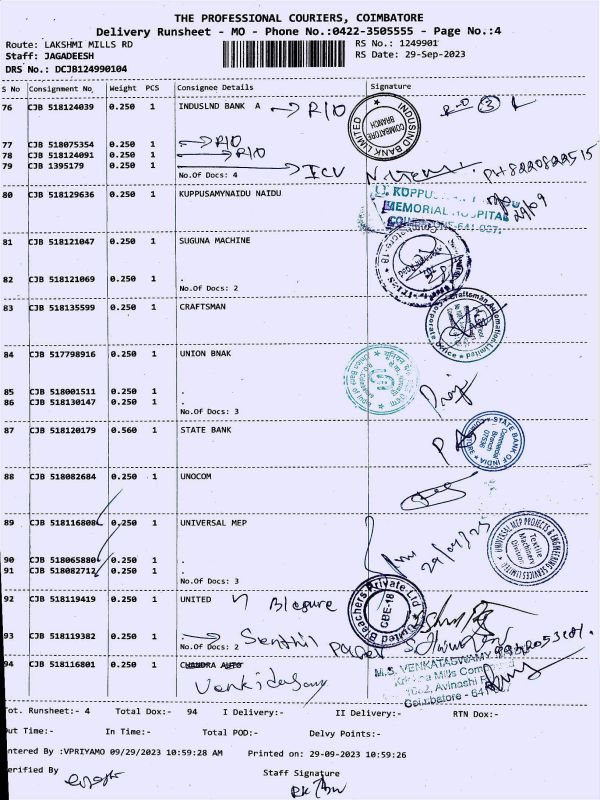 THE PROFESSIONAL COURIERS, COIMBATORE
Delivery Runsheet - MO - Phone No.:0422-3505555 - Page No.:4
Route: LAKSHMI MILLS RD RS No.: 1249901
Staff: JAGADEESH RS Date: 29-Sep-2023
DRS No.: DCJB124990104
S No Consignment No. Weight PCS Consignee Details Signature
76 CJB 518124039 0.250 1 INDUSLND BANK A → R/O
INDUSIND BANK LIMITED
COIMBATORE BRANCH
77 CJB 518075354 0.250 1 → R/O
78 CJB 518124091 0.250 1 → R/O
79 CJB 1395179 0.250 1 → ICU
No.Of Docs: 4
80 CJB 518129636 0.250 1 KUPPUSAMYNAIDU NAIDU
MEMORIAL HOSPITAL
81 CJB 518121047 0.250 1 SUGUNA MACHINE
82 CJB 518121069 0.250 1 .
No.Of Docs: 2
83 CJB 518135599 0.250 1 CRAFTSMAN
Craftsman Automation Limited
Corporate Office
84 CJB 517798916 0.250 1 UNION BNAK
85 CJB 518001511 0.250 1 .
86 CJB 518130147 0.250 1 .
No.Of Docs: 3
87 CJB 518120179 0.560 1 STATE BANK
STATE BANK OF INDIA
Commercial Branch
07536
88 CJB 518082684 0.250 1 UNOCOM
89 CJB 518116808 0.250 1 UNIVERSAL MEP
UNIVERSAL MEP PROJECTS & ENGINEERING SERVICES LIMITED
Textile Machinery Division
90 CJB 518065880 0.250 1 .
91 CJB 518082712 0.250 1 .
No.Of Docs: 3
92 CJB 518119419 0.250 1 UNITED
United Bleachers Private Ltd
CBE-18
93 CJB 518119382 0.250 1 → Senthil
No.Of Docs: 2
94 CJB 518116801 0.250 1 CHANDRA AUTO
Venkidasamy
M.S. VENKATASWAMY
1052, Avinashi
Coimbatore - 641
Tot. Runsheet:- 4 Total Dox:- 94 I Delivery:- II Delivery:- RTN Dox:-
Out Time:- In Time:- Total POD:- Delvy Points:-
ntered By :VPRIYAMO 09/29/2023 10:59:28 AM Printed on: 29-09-2023 10:59:26
erified By Staff Signature